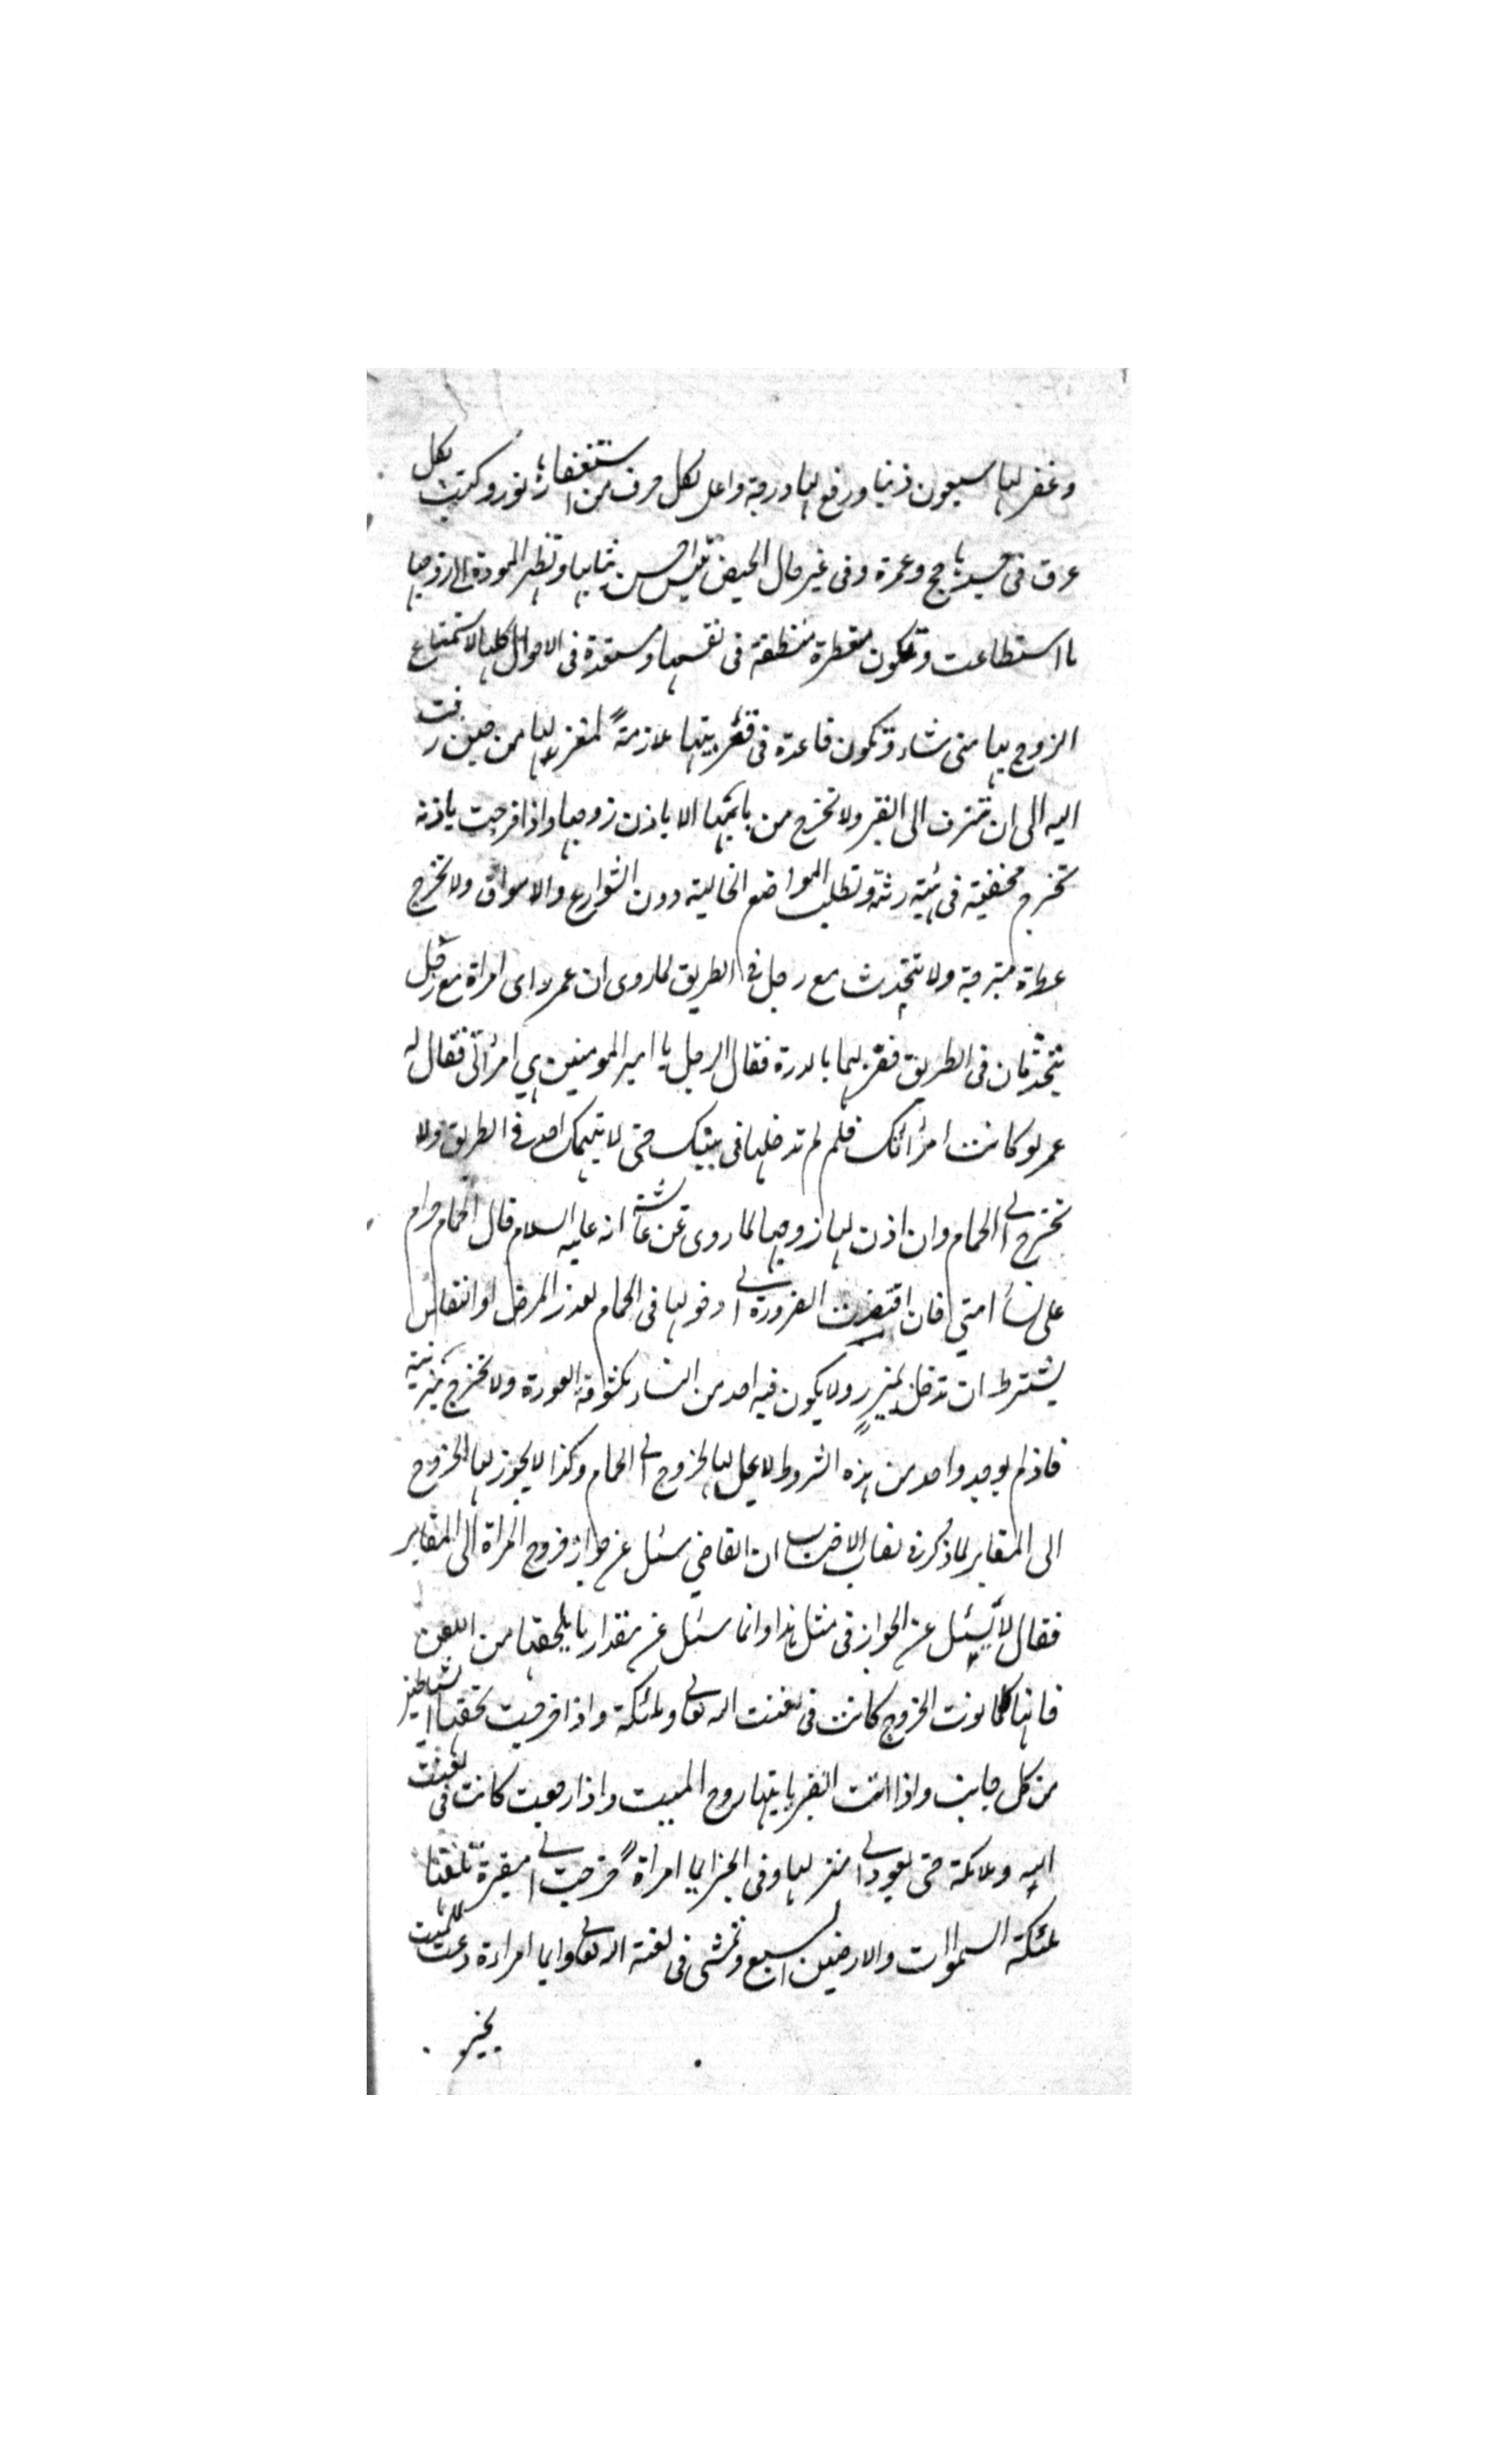 وغفر لها سبعون ذنبا ورفع لها درجة واعل بكل حرف من استغفارها نور وكتب بكل
عرق في جسدها حج وعمرة وفي غير حال الحيض تلبس احسن ثيابها وتظهر المودة الى زوجها
ما استطاعت وتكون معطرة منظفة في نفسها ومستعدة في الاحوال كلها لاستمتاع
الزوج بها متى شاء وتكون قاعدة في قعر بيتها ملازمةً لمغزلها من حين زفت
اليه الى ان تزف الى القبر ولا تخرج من بابها الا باذن زوجها واذا خرجت باذنه
تخرج مخفية في هيئة رثة وتطلب المواضع الخالية دون الشوارع والاسواق ولا تخرج
عطرة متبرجة ولا تتحدث مع رجل في الطريق لما روى ان عمر راى امراة مع رجل
يتحدثان في الطريق فضربهما بالدرة فقال الرجل يا امير المومنين هي امرأتي فقال له
عمر لو كانت امرأتك فلم لم تدخلها في بيتك حتى لا يتهمك احد في الطريق ولا
تخرج الى الحمام وان اذن لها زوجها لما روى عن عائشة انه عليه السلام قال الحمام حرام
على نساء امتي فان اقتضت الضرورة الى دخولها في الحمام لعذر المرض او النفاس
يشترط ان تدخل بميزر ولا يكون فيه احد من النساء مكشوفة العورة ولا تخرج متزينة
فاذ لم يوجد واحد من هذه الشروط لا يحل لها الخروج الى الحمام وكذا لا يجوز لها الخروج
الى المقابر لما ذكر في نصاب الاحتساب ان القاضي سئل عن جواز خروج المراة الى المقابر
فقال لا يسئل عن الجواز في مثل هذا وانما سئل عن مقدار ما يلحقها من اللعن
فانها كلما نوت الخروج كانت في لعنت الله تعالى وملئكة واذا خرجت تحفها الشياطين
من كل جانب واذا اتت القبر ياتيها روح الميت واذا رجعت كانت في لعنت
الله وملائكة حتى يعود الى منزلها وفي الخبر ايما امراةً خرجت الى مقبرة تلعنها
ملئكة السموات والارضين السبع وتمشي في لعنة الله تعالى وايما امراءة دعت للميت
بخير